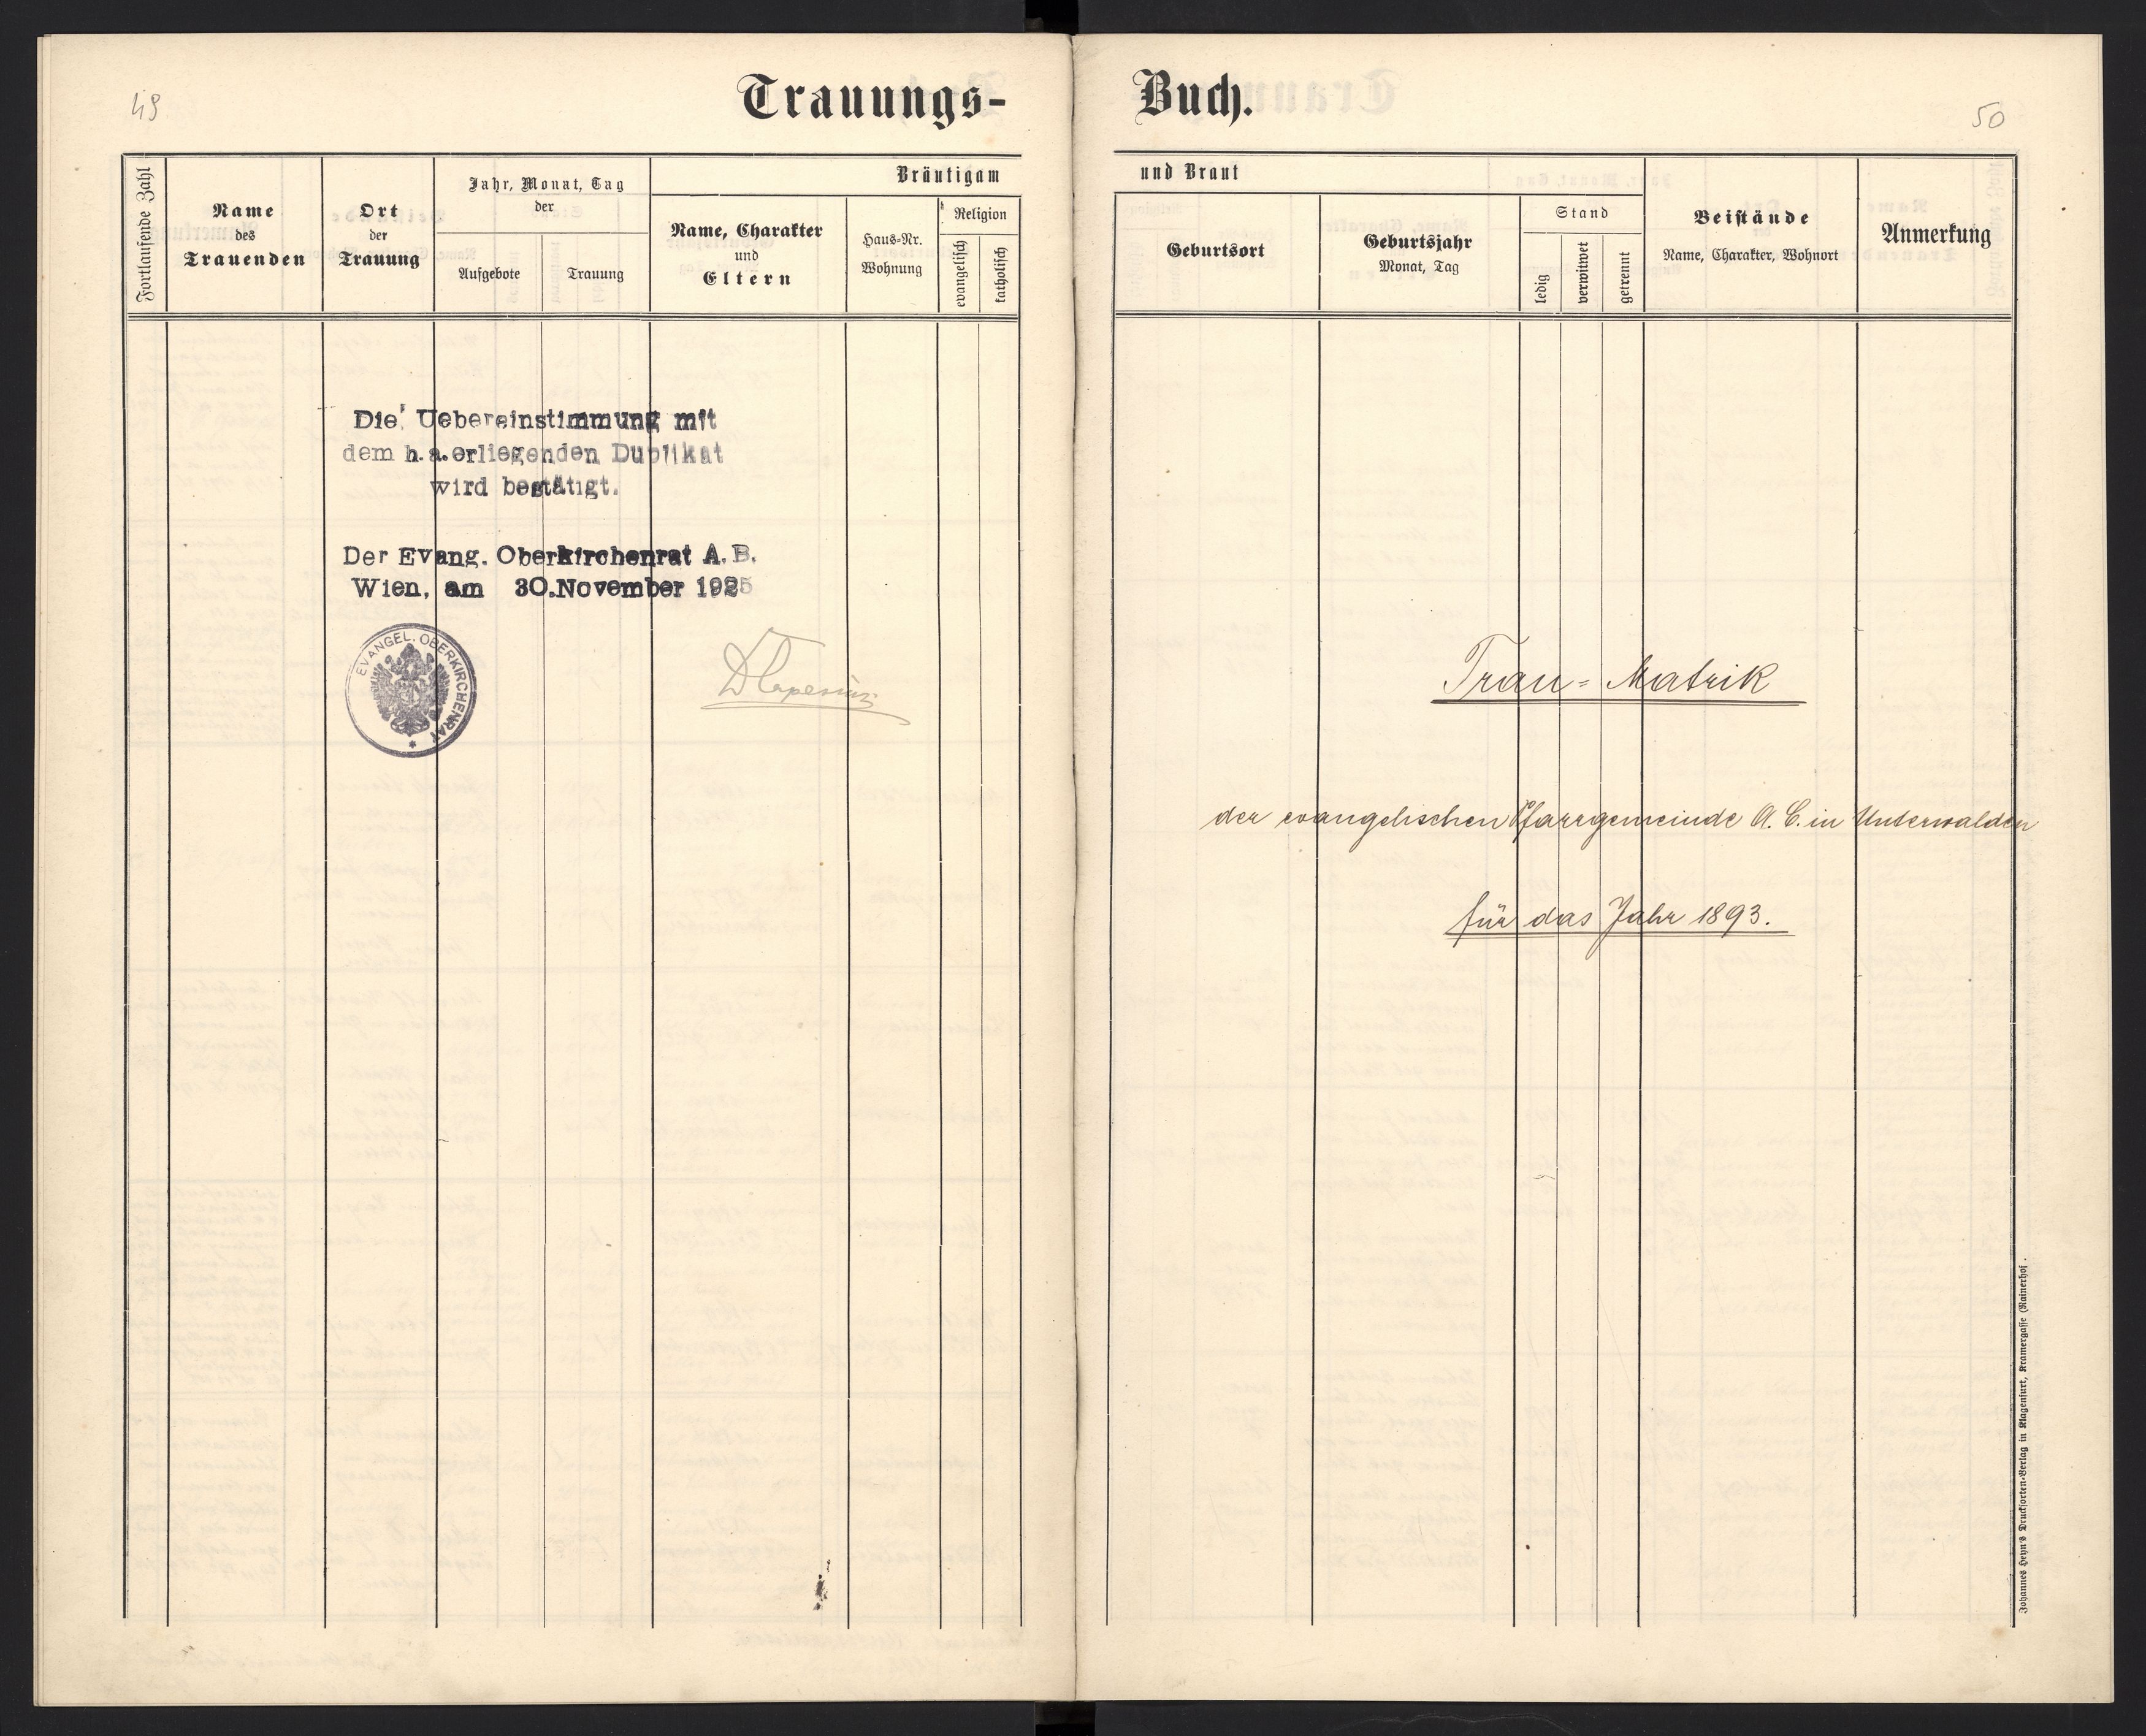 49
Trauungs-
Fortlaufende Zahl
Name
des
Trauenden
Ort
der
Trauung
Jahr, Monat, Tag
der
Aufgebote
Trauung
Bräutigam
Name, Charakter
und
Eltern
Haus-Nr.
Wohnung
Religion
evangelisch
katholisch
Die Uebereinstimmung mit
dem h.a.erliegenden Duplikat
wird bestätigt.
Der Evang. Oberkirchenrat A.B.
Wien, am 30.November 1925
EVANGEL. OBERKIRCHENRAT
Buch.
50
und Braut
Geburtsort
Geburtsjahr
Monat, Tag
Stand
ledig
verwitwet
getrennt
Beistände
Name, Charakter, Wohnort
Anmerkung
Trau= Matrik
der evangelischen Pfarrgemeinde A. C. in Unterwalden
für das Jahr 1893.
Johannes Heyn's Drucksorten-Verlag in Klagenfurt, Kramergasse (Rainerhof.